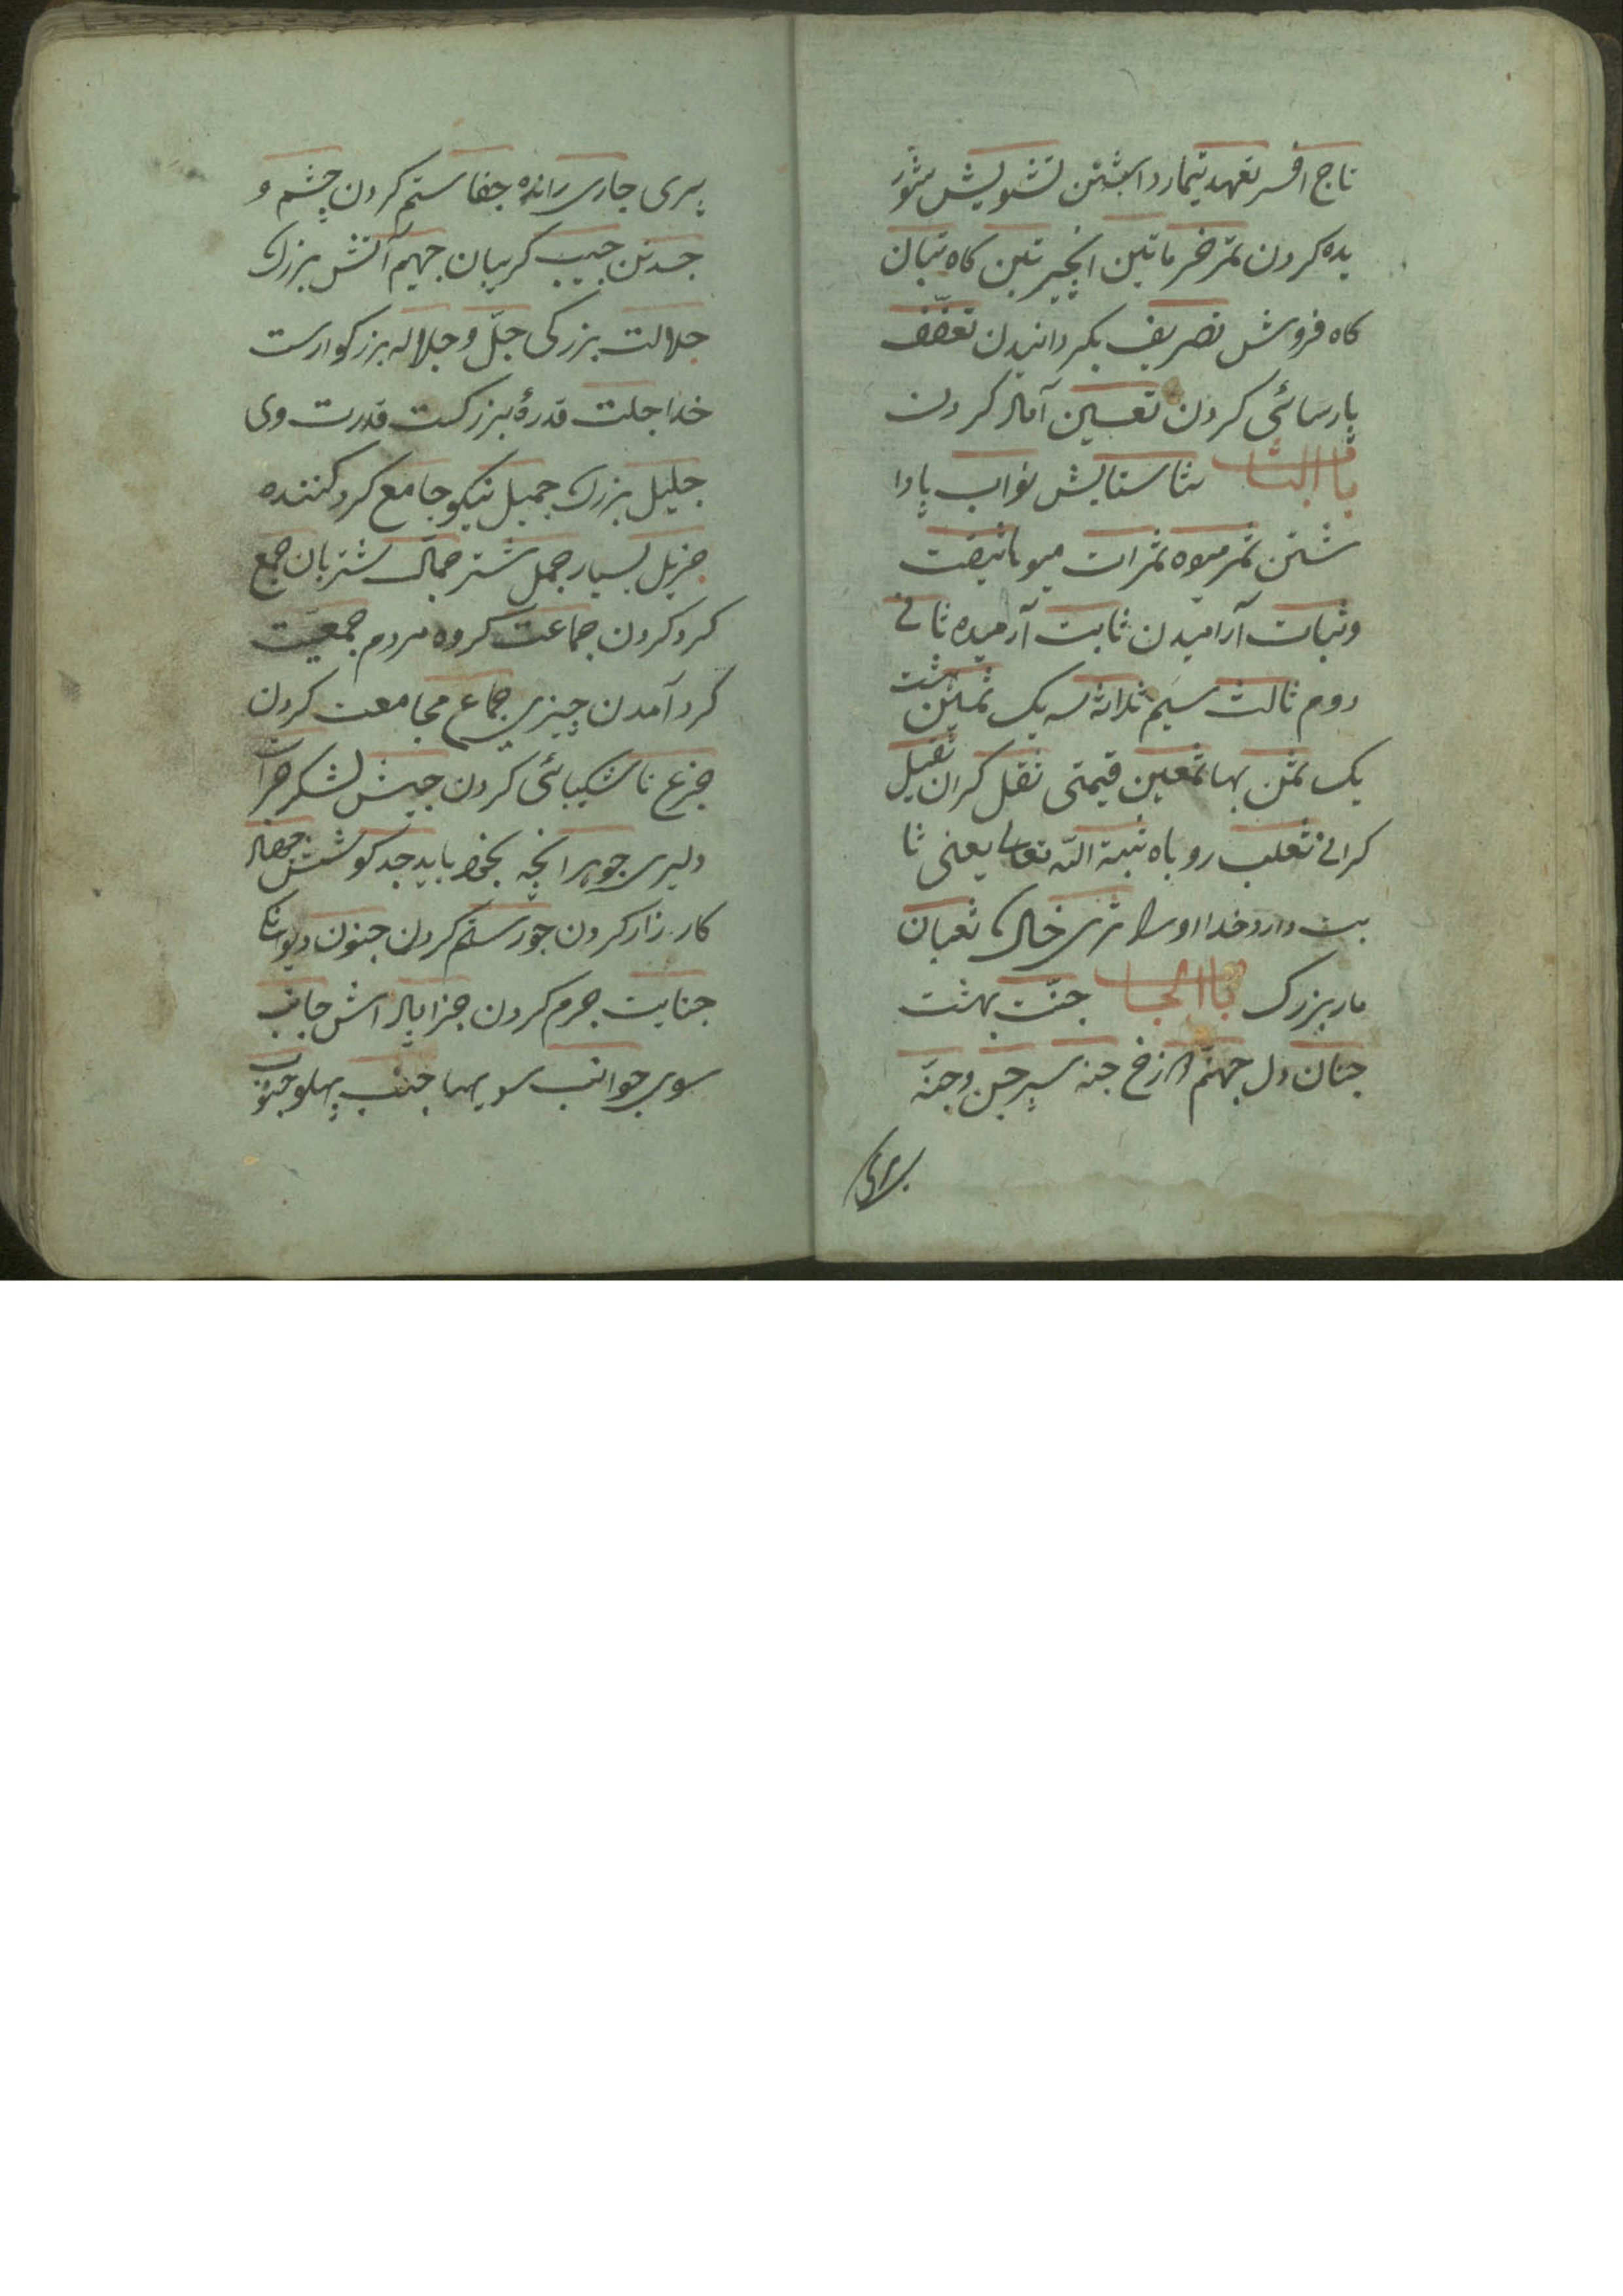 تاج افسر تعهد تیمار داشتن تشویش شور
یده کردن تمر خرما تین انجیر تبن کاه تبان
کاه فروش تصریف بکردانیدن تعفف
پارسائی کردن تعیین کردن
باب الثا ثنا ستایش ثواب پادا
شتن ثمر میوه ثمرات میوها ثبت
و ثبات آرامیدن ثابت آرمیده ثانی
دوم ثالث سیم ثلاثه سه یک ثمن هشت
یک ثمن بها ثمین قیمتی ثقل کران ثقیل
کرانی ثعلب روباه ثبته الله تعالی یعنی ثا
بت دارد خدا او را ثری خاک ثعبان
مار بزرک باب الجا جنت بهشت
جنان دل جهنم دوزخ جنه سپر جن و جنه
پری جاری رانده جفا ستم کردن چشم و
جسد تن جیب کریبان جهیم آتش بزرک
جلالت بزرکی جل و جلاله بزرکوارست
خدا جلت قدرهٔ بزرکست قدرت وی
جلیل بزرک جمیل نیکو جامع کرد کننده
جزیل بسیار جمل شتر جمال شتربان جمع
کرد کردن جماعت کروه مردم جمعیت
کرد آمدن چیزی جماع مجامعت کردن
جزع ناشکیبائی کردن جیش لشکر جرات
دلیری جوهر انچه بخود باید جد کوشش جهاد
کارزار کردن جور ستم کردن جنون دیوانکی
جنایت جرم کردن جزا پاداش جانب
سوی جوانب سویها جنب پهلو جنوب